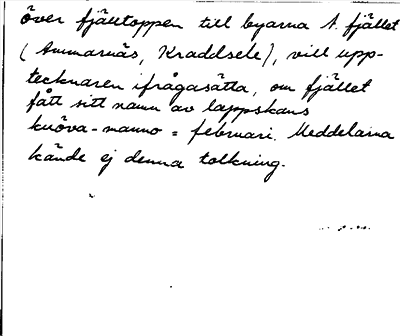 över fjälltoppen till byarna N. fjället
(Ammarnäs, Kraddsele), vill upp-
tecknaren ifrågasätta, om fjället
fått sitt namn av lappskans
kuöva-manno = februari. Meddelarna
kände ej denna tolkning.